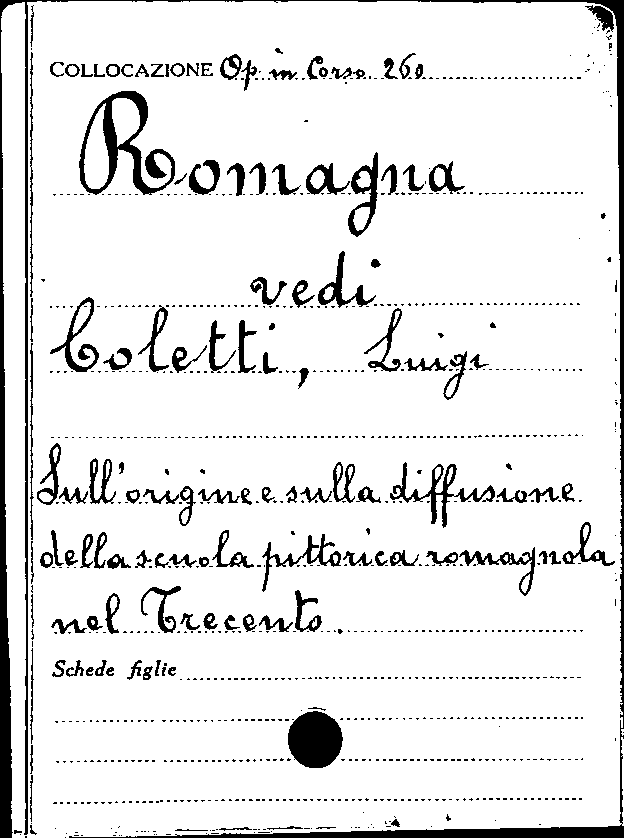 COLLOCAZIONE Op. in Corso 260
Romagna
vedi
Coletti, Luigi
Sull'origine e sulla diffusione
della scuola pittorica romagnola
nel Trecento.
Schede figlie